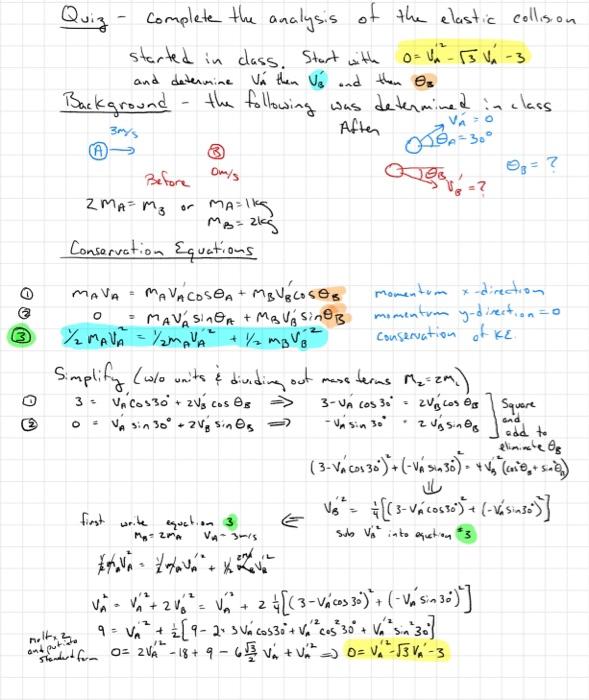 Quiz - Complete the analysis of the elastic collision
started in class. Start with 0 = V_A'² - √3 V_A' - 3
and determine V_A' then V_B' and then θ_B
Background - the following was determined in class
After
3m/s
A
B
0m/s
Before
V_A' = 0
θ_A = 30°
θ_B
V_B' = ?
θ_B = ?
2 m_A = m_3 or m_A = 1kg
m_B = 2kg
Conservation Equations
① m_A V_A = m_A V_A' cos θ_A + m_B V_B' cos θ_B momentum x-direction
② 0 = m_A V_A' sin θ_A + m_B V_B' sin θ_B momentum y-direction = 0
③ 1/2 m_A V_A² = 1/2 m_A V_A'² + 1/2 m_B V_B'² conservation of KE.
Simplify (w/o units & dividing out mass terms M_2 = 2M_1)
① 3 = V_A' cos 30° + 2V_B' cos θ_B ⇒ 3 - V_A' cos 30° = 2V_B' cos θ_B
② 0 = V_A' sin 30° + 2V_B' sin θ_B ⇒ -V_A' sin 30° = 2V_B' sin θ_B
Square
and
add to
eliminate θ_B
(3 - V_A' cos 30°)² + (-V_A' sin 30°)² = 4V_B'² (cos²θ_B + sin²θ_B)
⇓
V_B'² = 1/4 [(3 - V_A' cos 30°)² + (-V_A' sin 30°)²]
⇐
sub V_B'² into equation #3
first write equation 3
m_B = 2m_A V_A = 3m/s
1/2 m_A V_A² = 1/2 m_A V_A'² + 1/2 2m_A V_B'²
V_A² = V_A'² + 2V_B'² = V_A'² + 2 1/4 [(3 - V_A' cos 30°)² + (-V_A' sin 30°)²]
9 = V_A'² + 1/2 [9 - 2×3 V_A' cos 30° + V_A'² cos² 30° + V_A'² sin² 30°]
mult x 2
and put into
standard form
0 = 2V_A'² - 18 + 9 - 6 √3/2 V_A' + V_A'² ⇒ 0 = V_A'² - √3 V_A' - 3